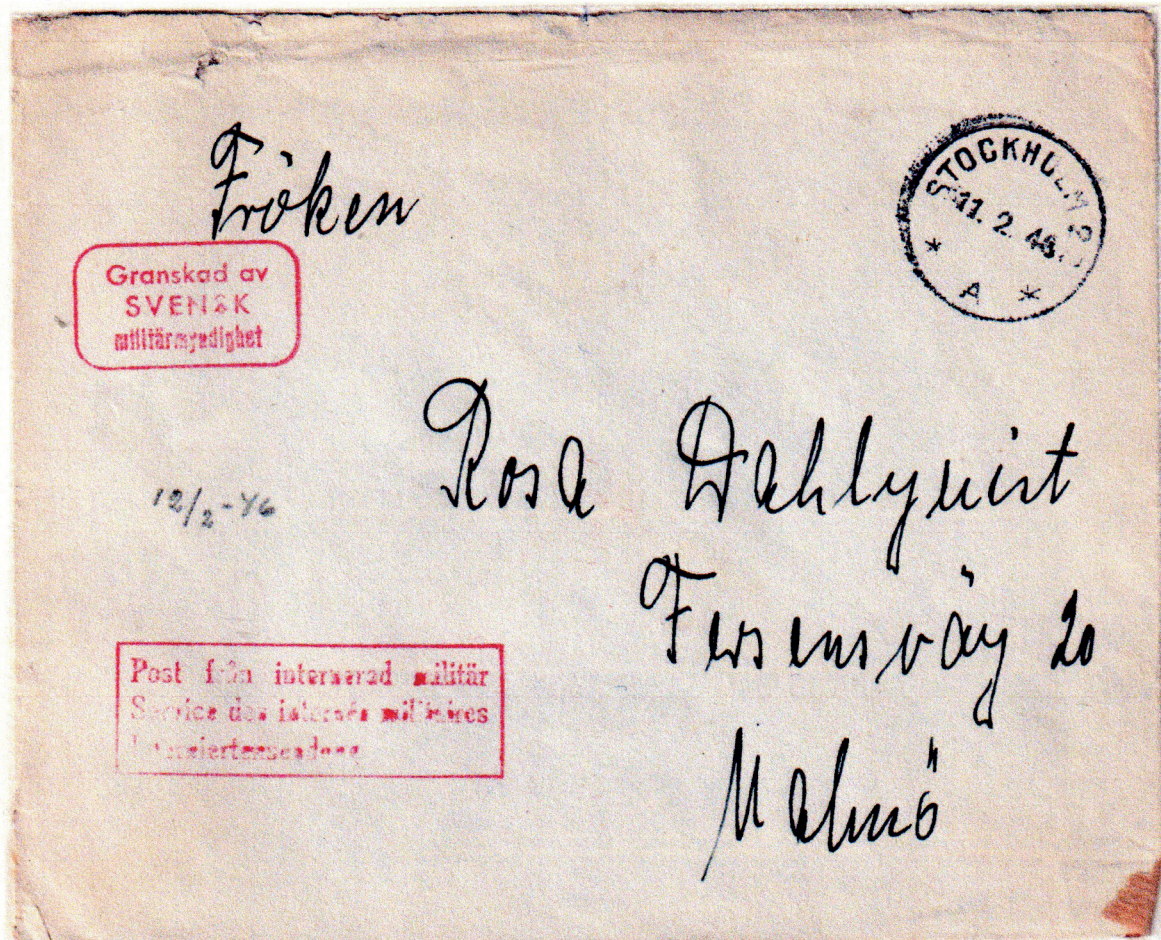 Fröken
STOCKHOLM 2
11. 2. 46
A
Granskad av
SVENSK
militärmyndighet
Rosa Dahlquist
12/2-46
Fersensväg 20
Post från internerad militär
Service des internés militaires
Interniertensendung
Malmö